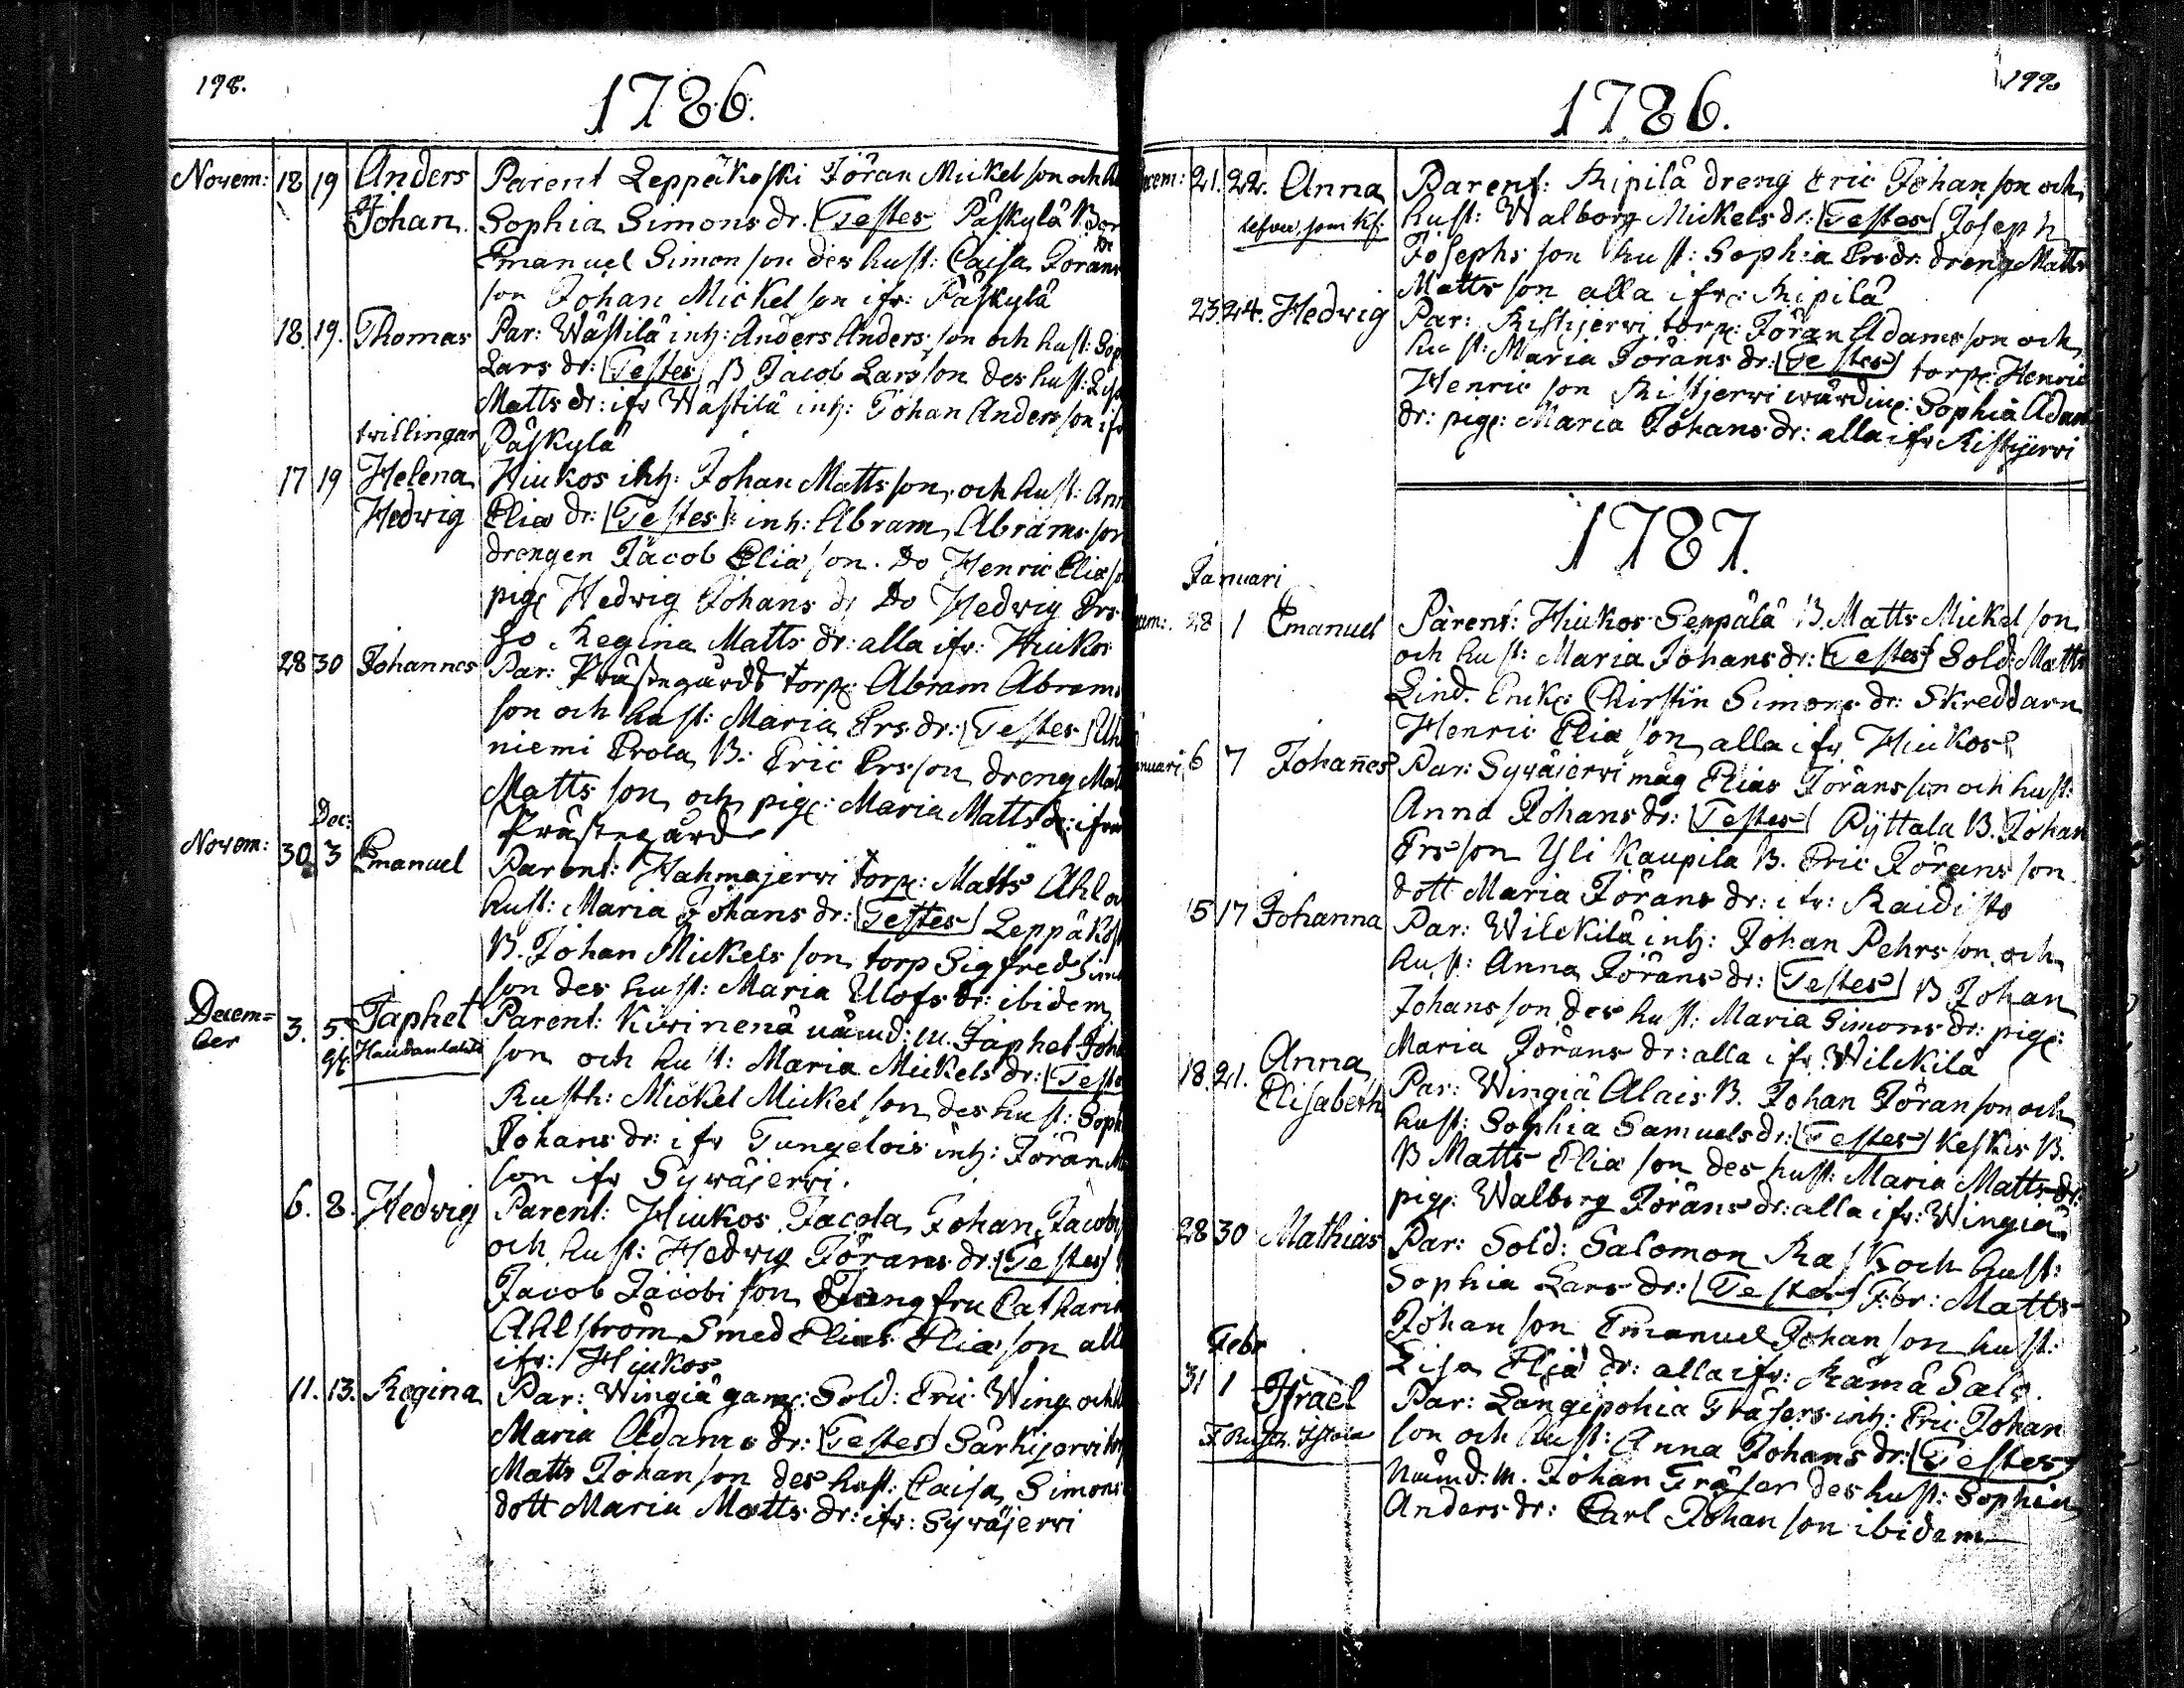 198.
1786.
Novem: 18 19 Anders Parent Leppäkoski Jöran Mickelson och
Johan. Sophia Simons dr. Testes Päskylä B
Emanuel Simonson des hust: Caisa Jörans
son Johan Mickelson ifr: Päskylä
18. 19. Thomas Par: Wästilä inh: Anders Andersson och hust: Sop
Lars dr: Testes B Jacob Larsson des hust: Lisa
Matts dr: ifr Wästilä inh: Johan Andersson ifr
twillingar Päskylä
17 19 Helena Hiukos inh: Johan Mattsson och hust: Ann
Hedwig Elia dr: Testes: inh: Abram Abramsson
drengen Jacob Eliason. Do Henric Eliaso
pig: Hedwig Johans dr Do Hedwig Ers
Do Regina Matts dr: alla ifr: Hiukos
28 30 Johannes Par: Prästegårds torp: Abram Abrams
son och hust: Maria Ers dr: Testes
niemi Erola B: Eric Ersson dreng Matt
Mattsson och pig: Maria Matts dr: ifrå
Dec: Prästegård
Novem: 30. 3 Emanuel Parent: Hahmajerwi torp: Matts Ahl
hust: Maria Johans dr: Testes Leppäkosk
B. Johan Mickelsson torp Sigfred Sim
son des hust: Maria Ulofs dr: ibidem
Decem= 3. 5. Japhet Parent: Kiwinenä nämd: m. Japhet Joh
ber son och hust: Maria Mickels dr: Teste
Rusth: Mickel Mickelson des hust: Soph
Johans dr: ifr Tungelois inh: Jöran
son ifr Sywäjerwi.
6. 8. Hedwig Parent: Hiukos Jacola Johan Jacobs
och hust: Hedwig Jörans dr: Testes
Jacob Jacobison Jungfru Catharin
Ahlström Smed Elias Eliason all
ifr: Hiukos
11. 13. Regina Par: Wingiä gam: Sold: Eric Wing och
Maria Adams dr: Testes Särkijerwi
Matts Johanson des hust: Caisa Simons
dott Maria Matts dr: ifr: Sywäjerwi
199.
1786.
21. 22. Anna Parent: Ripilä dreng Eric Johanson och
hust: Walborg Mickels dr: Testes Joseph
Josephsson hust: Sophia Ers dr: dreng Matts
Mattsson alla ifr: Ripilä
23 24. Hedwig Par: Ristijerwi torp: Jöran Adamsson och
hust: Maria Jörans dr: Testes torp: Henric
Henricson Ristijerwi wärdin: Sophia Adam
dr: pig: Maria Johans dr: alla ifr Ristijerwi
1787.
Januari
28 1 Emanuel Parent: Hiukos Seppälä B. Matts Mickelson
och hust: Maria Johans dr: Testes Sold: Matts
Lind. Enk: Chirstin Simons dr: Skreddarn
Henric Eliason alla ifr Hiukos
6 7 Johanes Par: Sywäjerwi måg Elias Jöransson och hust:
Anna Johans dr: Testes Pyttala B. Johan
Ersson Yli Kaupila B. Eric Jöransson
dott Maria Jörans dr: ifr: Raidisto
15 17 Johanna Par: Wilckilä inh: Johan Pehrsson och
hust: Anna Jörans dr: Testes B Johan
Johansson des hust: Maria Simons dr: pig:
Maria Jörans dr: alla ifr Wilckilä
18. 21. Anna Par: Wingiä Alais B. Johan Jöranson och
Elisabeth hust: Sophia Samuels dr: Testes Keskis B.
B Matts Eliason des hust: Maria Matts dr:
pig: Walborg Jörans dr: alla ifr: Wingiä
28 30 Mathias Par: Sold: Salomon Rask och hust:
Sophia Lars dr: Testes För: Matts
Johanson Emanuel Johanson hust:
Febr Lisa Elia dr: alla ifr: Rämä Salo.
31 1 Israel Par: Längipohia Träsers inh: Eric Johan
son och hust: Anna Johans dr: Testes
Nämd: m. Johan Träser des hust: Sophia
Anders dr: Carl Johanson ibidem